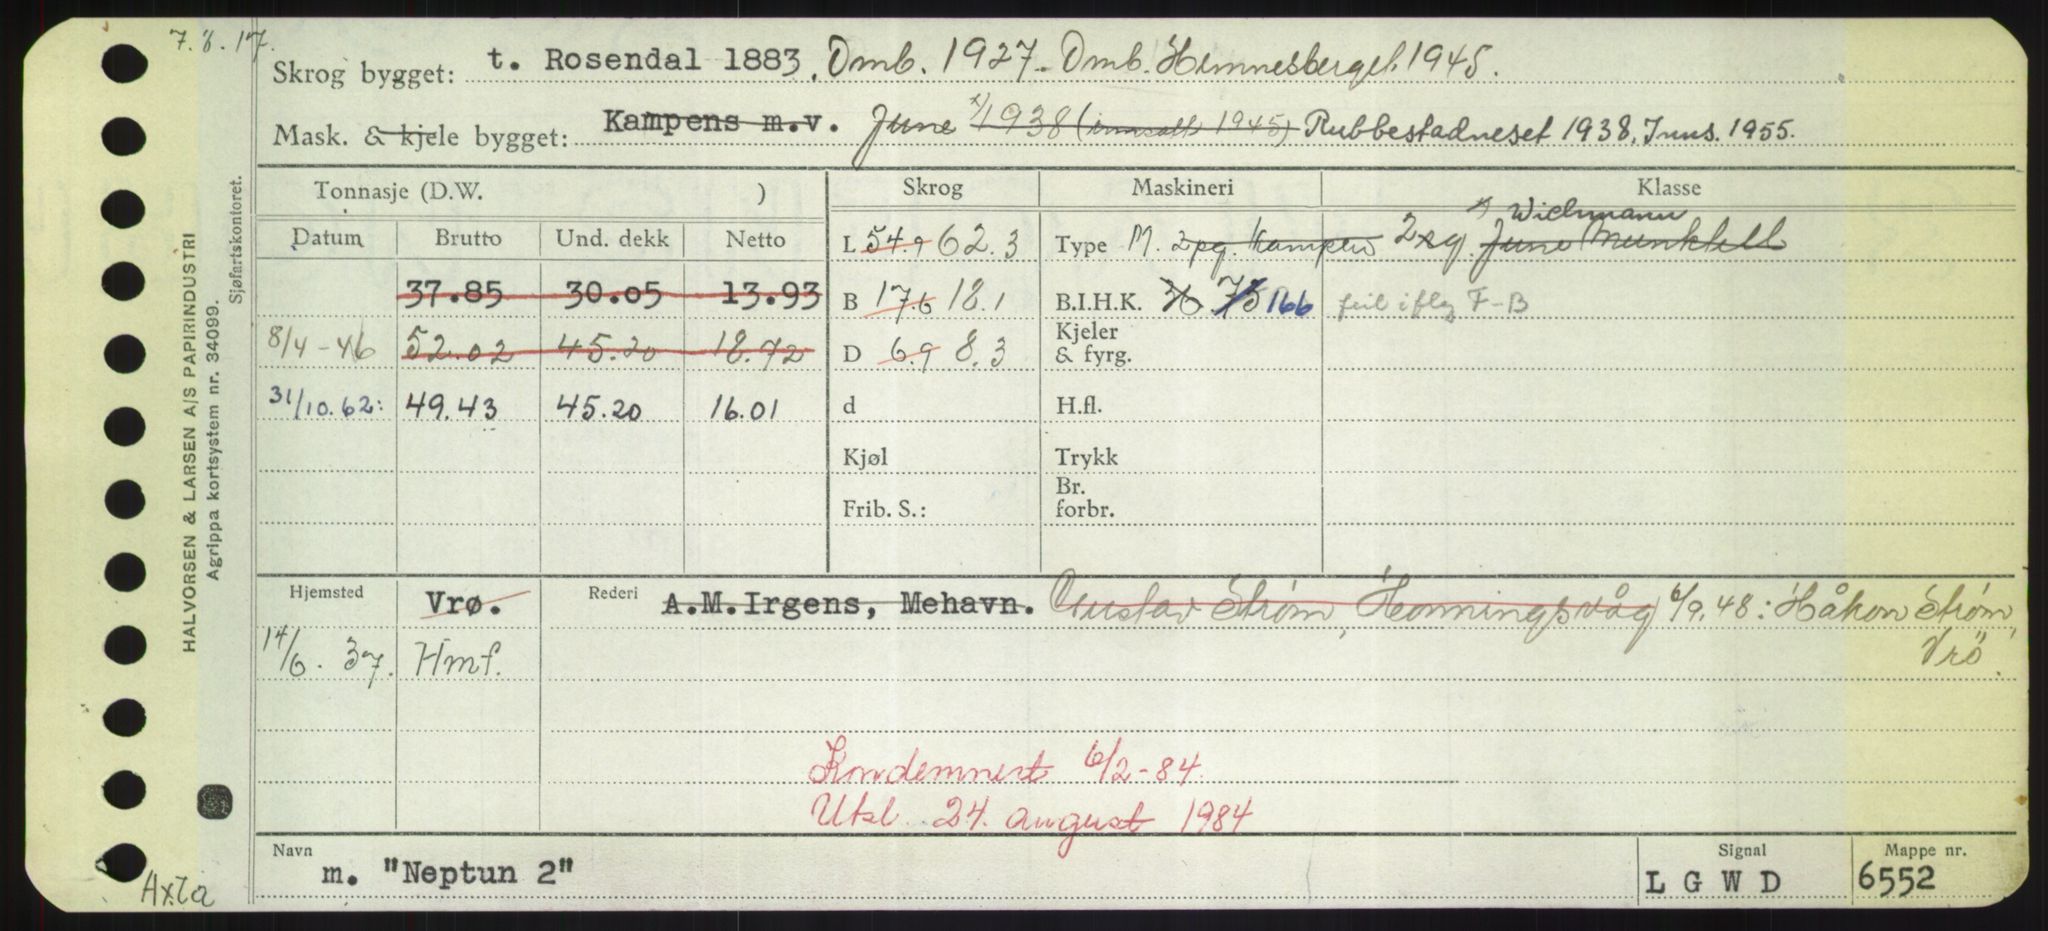 7.8.17.
Skrog bygget: t. Rosendal 1883. Omb. 1927. Omb. Hemnesberget 1945.
Mask. & kjele bygget: Kampens m.v. June x/1938 (innsatt 1945) Rubbestadneset 1938. Inns. 1955.
Tonnasje (D.W. ) Skrog Maskineri Klasse
Datum Brutto Und. dekk Netto
L 54.9 62.3 Type M. 2pg. Kampen 2xg. June Munktell x) Wichmann
37.85 30.05 13.93 B 17.6 18.1 B.I.H.K. 36 75 166 feil iflg F-B
8/4-46 52.02 45.20 18.72 D 6.9 8.3 Kjeler & fyrg.
31/10.62: 49.43 45.20 16.01 d H.fl.
Kjøl Trykk
Frib. S.: Br. forbr.
Hjemsted Vrø. Rederi A.M.Irgens, Mehavn. Gustav Strøm, Honningsvåg 6/9.48: Håkon Strøm,
Vrö.
14/6. 37. Hmf.
Kondemnert 6/2-84.
Utsl. 24. august 1984
Navn m. "Neptun 2" Signal LGWD Mappe nr. 6552
Axla
HALVORSEN & LARSEN A/S PAPIRINDUSTRI
Agrippa kortsystem nr. 34099.
Sjøfartskontoret.